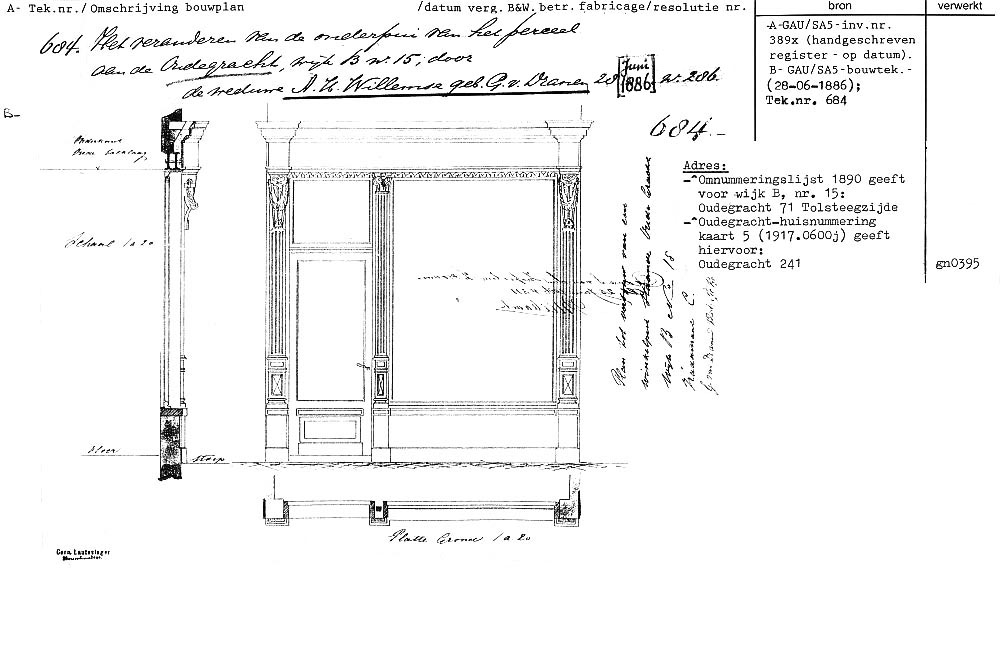 A- Tek.nr./ Omschrijving bouwplan /datum verg. B&W. betr. fabricage/resolutie nr.
bron
verwerkt
684. Het veranderen van de onderpui van het perceel
aan de Oudegracht, wijk B nr. 15, door
de weduwe A. H. Willemse geb. G. v. Dranen 28 [Juni 1886] nr. 286.
-A-GAU/SA5-inv.nr.
389x (handgeschreven
register - op datum).
B- GAU/SA5-bouwtek.-
(28-06-1886);
Tek.nr. 684
B-
684.-
Adres:
-^Omnummeringslijst 1890 geeft
voor wijk B, nr. 15:
Oudegracht 71 Tolsteegzijde
-^Oudegracht-huisnummering
kaart 5 (1917.0600j) geeft
hiervoor:
Oudegracht 241
gn0395
Onderkant
Schaal 1 a 20
Plan tot
Wijk B No 15
Vloer
Stoep
Platte Grond 1 a 20